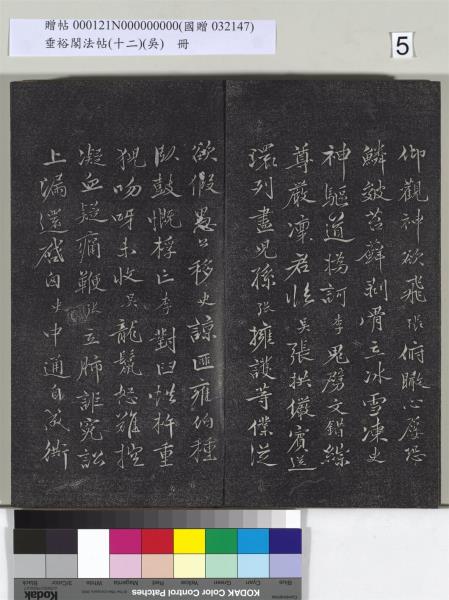 贈帖 000121N000000000(國贈 032147)
垂裕閣法帖(十二)(吳) 冊
5
仰觀神欲飛 俯瞰心屢恐
鱗皴苔蘚剥 骨立冰雪凍史
神驅道撝訶李 鬼劈文錯綜
尊嚴凜君 吳 張拱儼賓送
環列盡兒孫張 擁護等僕從
欲假愚公移史 諒匪雍伯種
臥鼓慨桴亡李 對臼恠杵重
猊吻呀未收吳 龍鬣怒難控
凝血疑痛鞭張 立肺詎寃訟
上漏還 史 中通自
KODAK Color Control Patches
Blue
Cyan
Green
Yellow
Red
Magenta
White
3/Color
Black